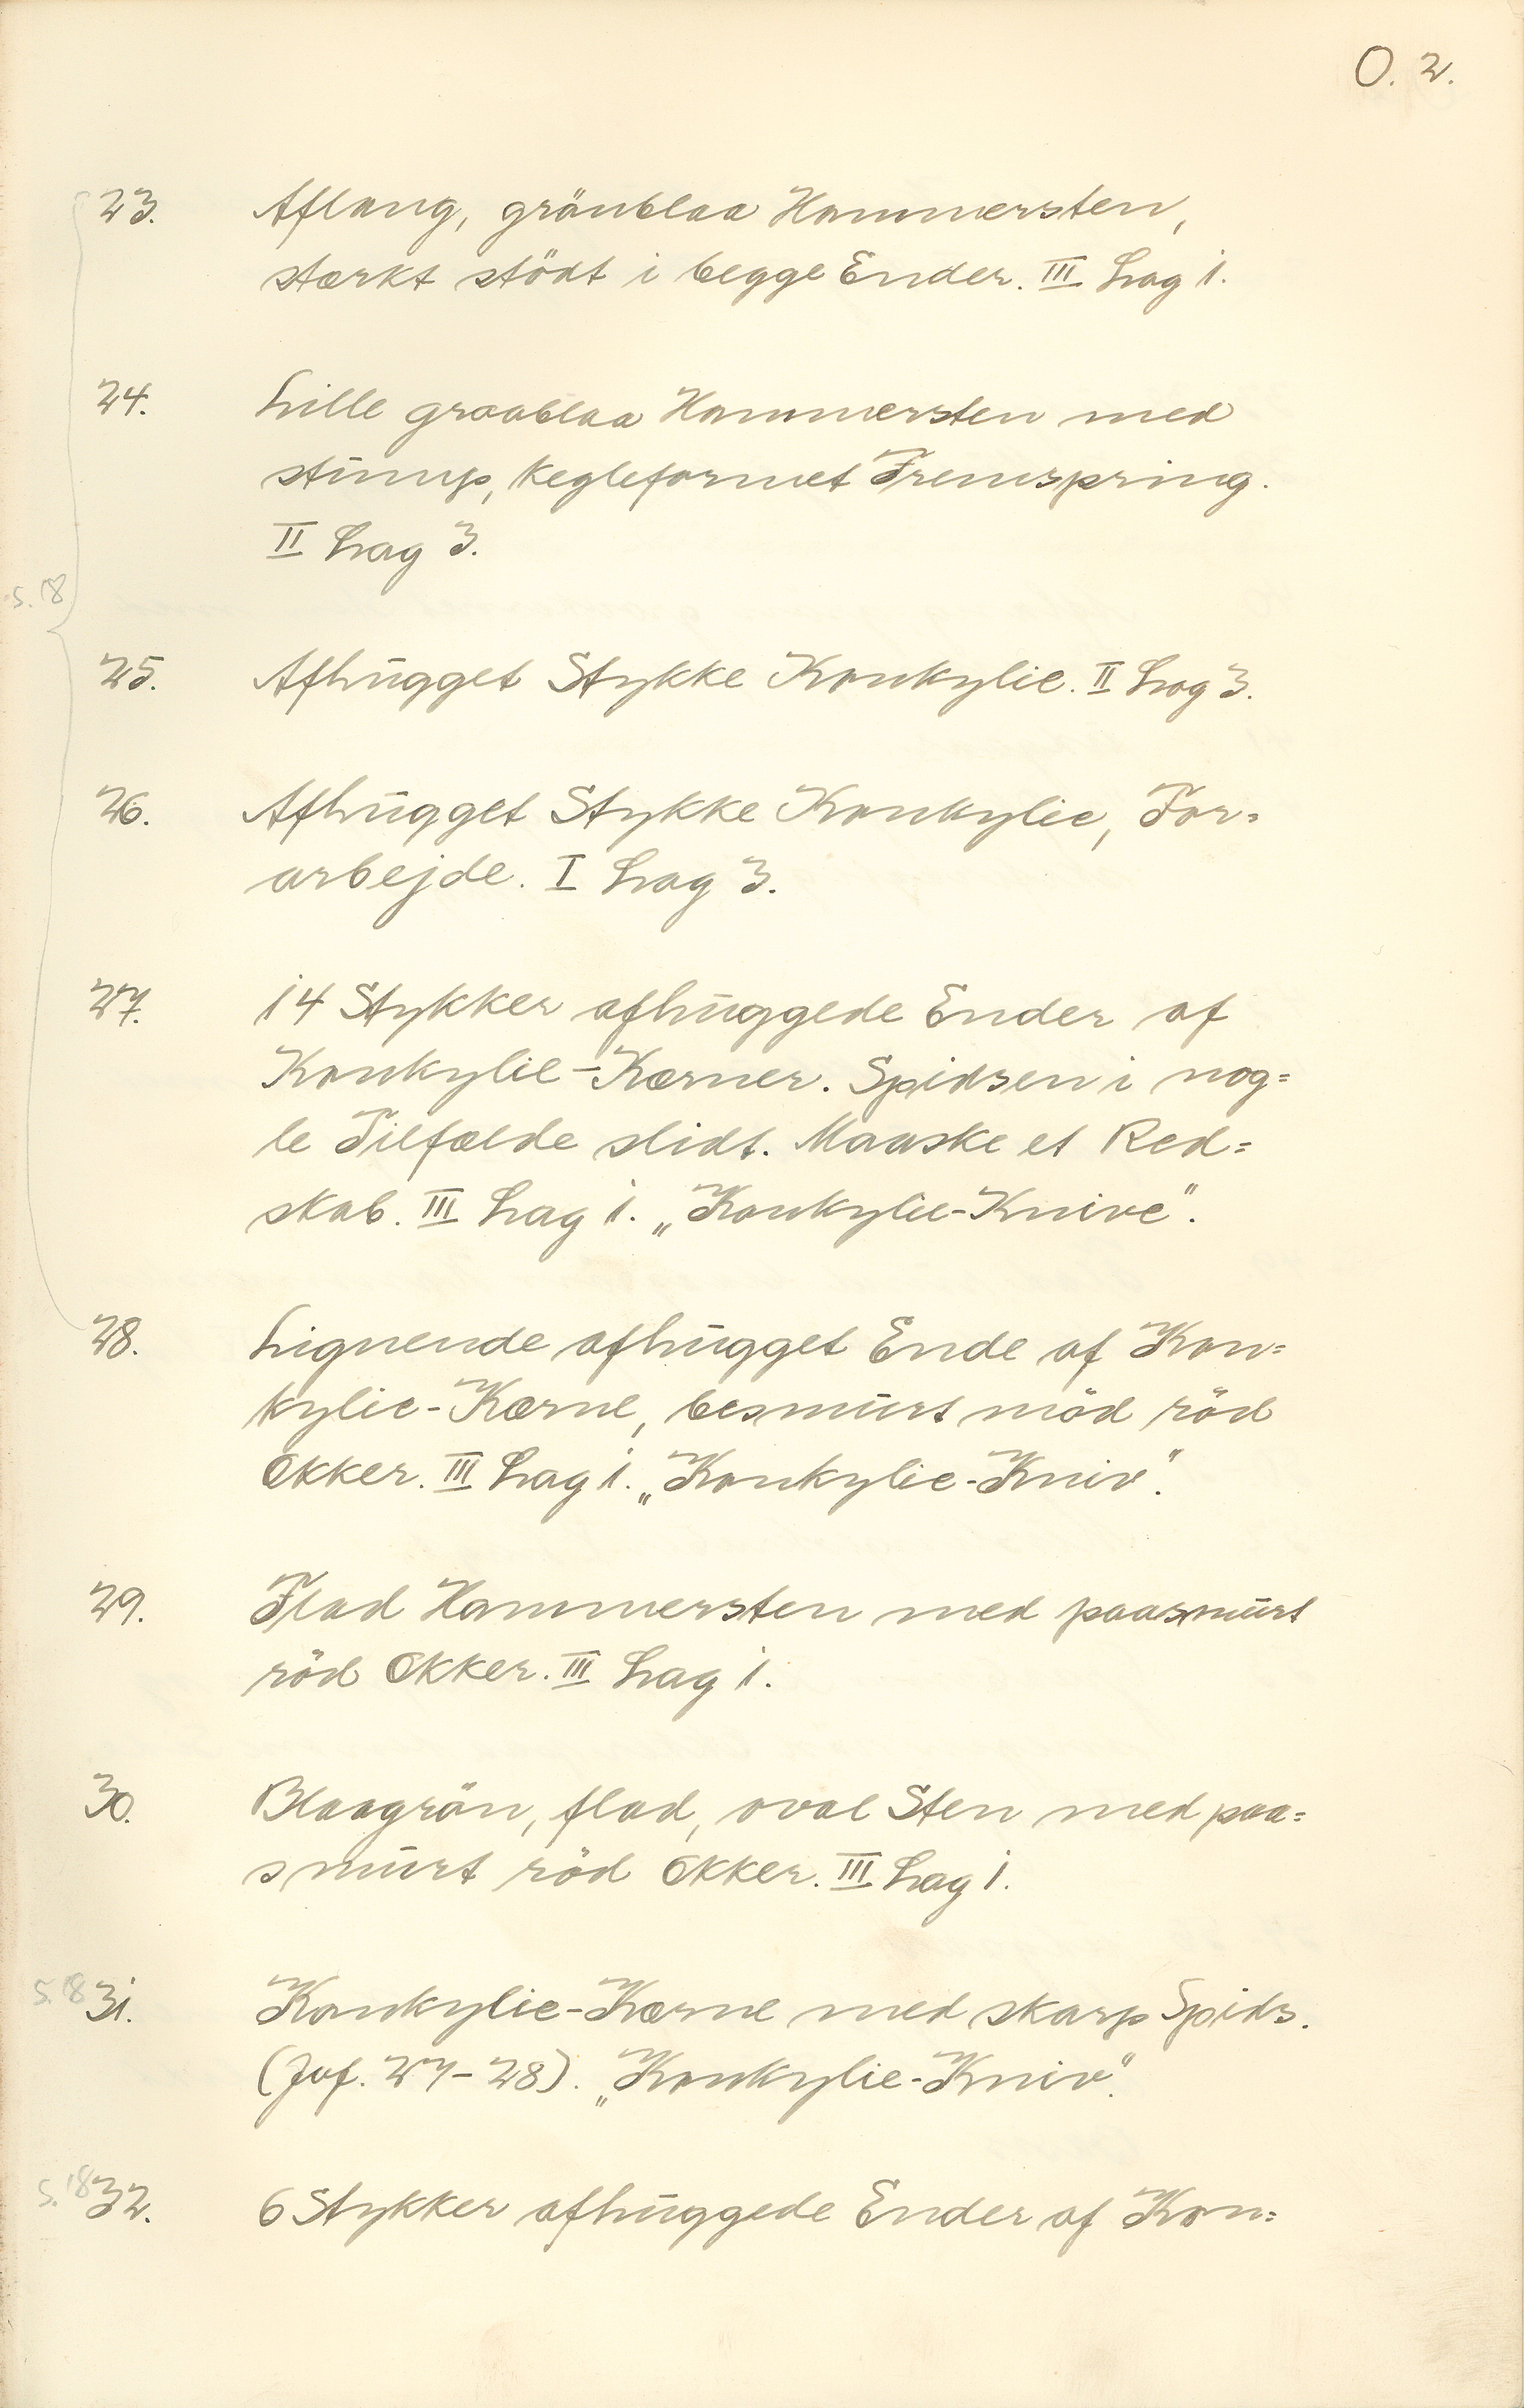 O. 2.
23. Aflang, grönblaa Hammersten,
stærkt stödt i begge Ender. III Lag 1.
24. Lille graablaa Hammersten med
stump, kegleformet Fremspring.
II Lag 3.
S. 18
25. Afhugget Stykke Konkylie. II Lag 3.
26. Afhugget Stykke Konkylie, For=
arbejde. I Lag 3.
27. 14 Stykker afhuggede Ender af
Konkylie-Kærner. Spidsen i nog=
le Tilfælde slidt. Maaske et Red=
skab. III Lag 1. „Konkylie-Knive".
28. Lignende afhugget Ende af Kon=
kylie-Kærne, besmurt möd röd
Okker. III Lag 1. „Konkylie-Kniv".
29. Flad Hammersten med paasmurt
röd Okker. III Lag 1.
30. Blaagrön, flad, oval Sten med paa=
smurt röd Okker. III Lag 1.
S. 18 31. Konkylie-Kærne med skarp Spids.
(Jvf. 27-28). „Konkylie-Kniv".
S. 18 32. 6 Stykker afhuggede Ender af Kon=